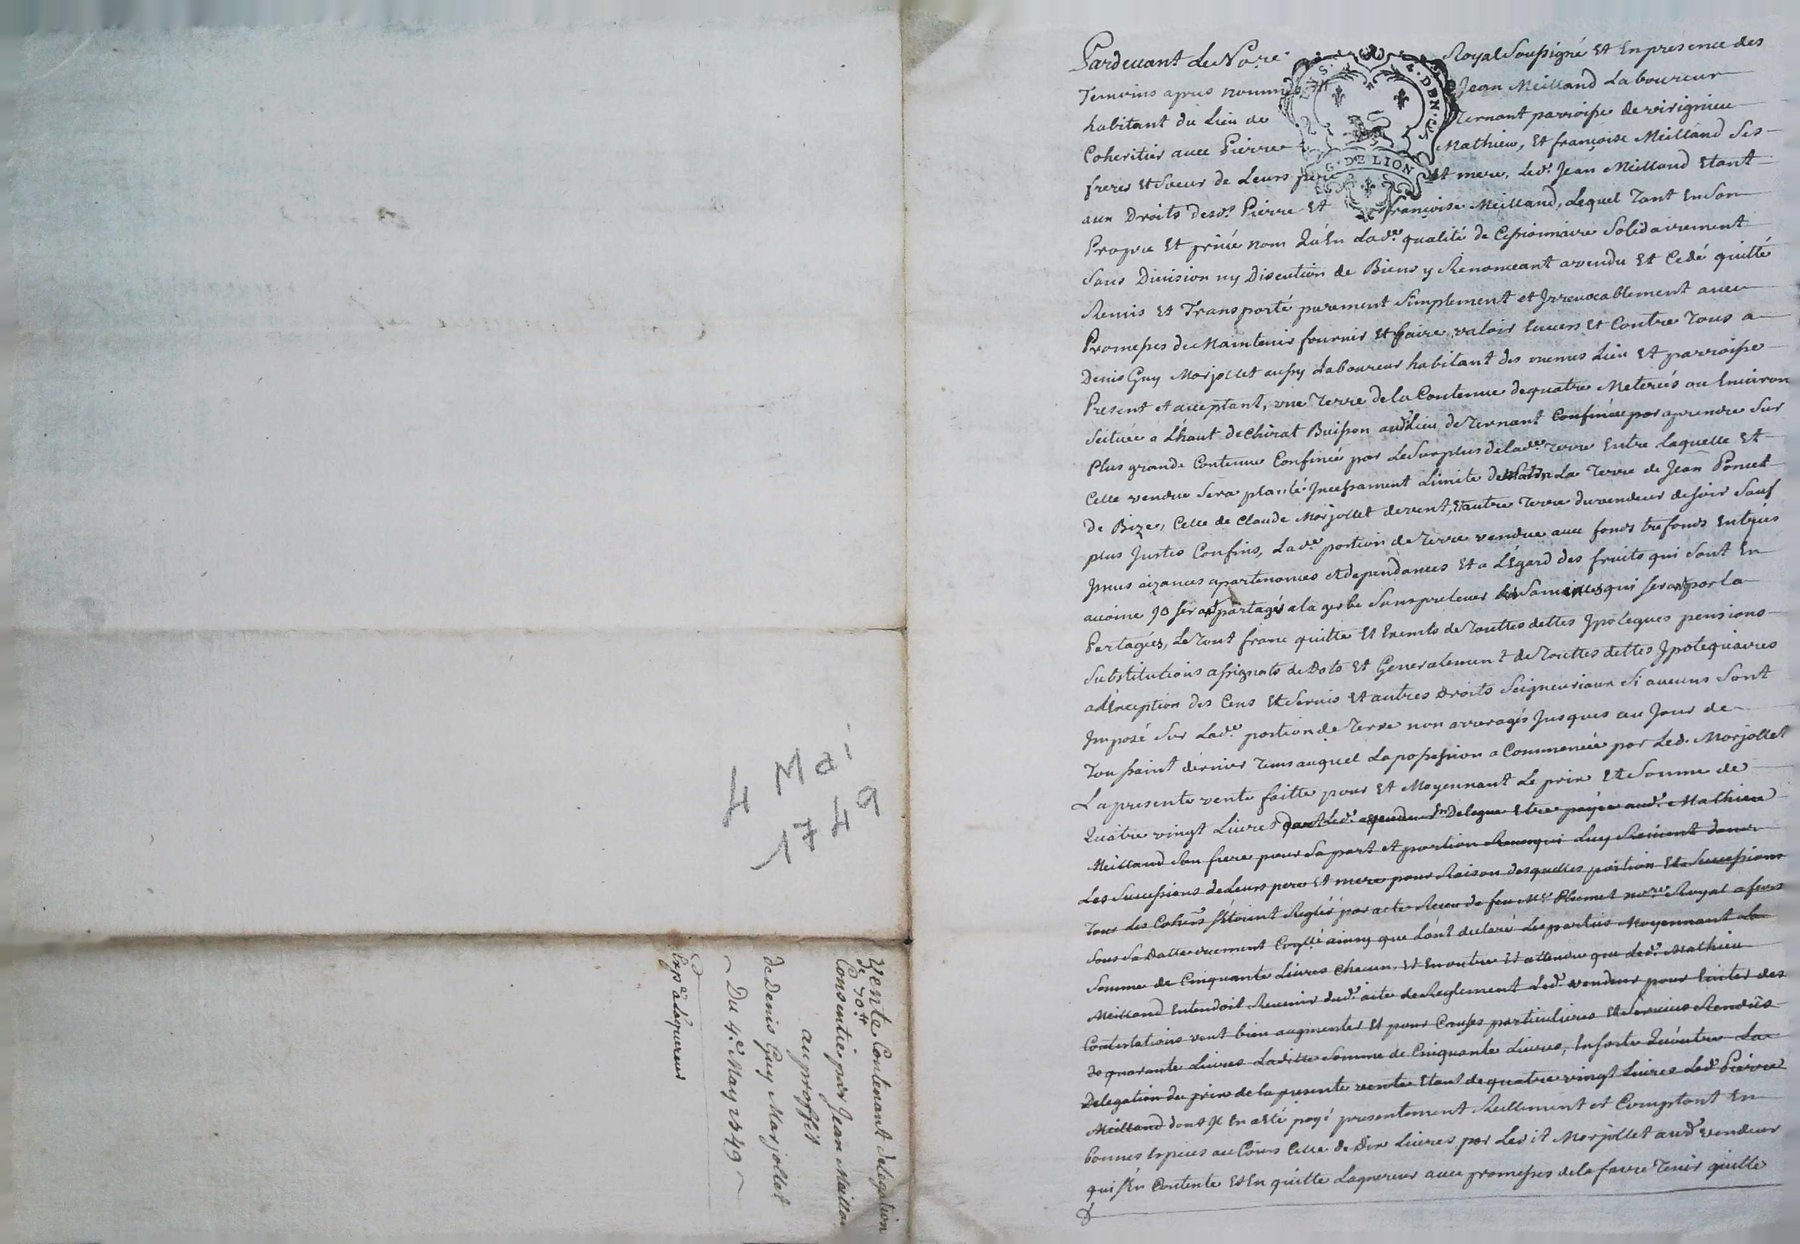 4 Mai
1749
Vente Contenant delegation
de 70ᵗᵗ
Consentie par Jean Meilland
au proffit
de Denis Guy Marjollet
Du 4e. May 1749
Exp. a laquereur
Pardevant Le No.re Royal Soussigné Et En presence des
Temoins apres nommés Jean Meilland Laboureur
habitant du Lieu de Ternant parroisse de virignieu
Coheritier avec Pierre Mathieu, Et françoise Meilland Ses
freres Et Soeur de Leurs pere Et mere, Led. Jean Meilland Etant
aux Droits desd. Pierre Et françoise Meilland, Lequel Tant En Son
Propre Et privé nom Qu'En Lad.e qualité de Cessionnaire Solidairement
Sans Division ny Discution de Biens y Renonceant a vendu Et Cedé quitté
Remis Et Transporté purement Simplement et Irrevocablement avec
Promesses de Maintenir fournir Et faire valoir Envers Et Contre Tous a
Denis Guy Marjollet aussy Laboureur habitant des memes Lieu Et parroisse
Present et aceptant, une Terre de La Contenue de quatre Meterées ou Environ
Scituée a Lhaut de Chirat Buisson aud. Lieu de Ternant Confinée par aprendre Sur
Plus grande Contenue Confinée par Le Surplus de Lad.e Terre Entre Laquelle Et
Celle vendue Sera planté Incessament Limite de matin La Terre de Jean Poncet
de Bize, Celle de Claude Marjollet de vent, Et autre Terre du vendeur de Soir Sauf
plus Justes Confins, Lad.e portion de Terre vendue avec fonds trefonds Entrées
Issues aizances apartenances et dependances Et a L'Egard des fruits qui Sont En
avoine Ils seront partagés a la gerbe Sans prelever Les Samailles qui seront par la
Partagées, Le Tout franc quitte Et Exempts de Touttes dettes Ipoteques pensions
Substitutions assignats de Dots Et Generalement de Touttes dettes Ipotequaires
a L'Exception des Cens Et Servis Et autres Droits Seigneuriaux Si aucuns Sont
Imposé Sur Lad.e portion de Terre non arreragés Jusques au Jour de
Toussaint dernier Tems auquel La possession a Commencée par Led. Marjollet
La presente vente faitte pour Et Moyennant Le prix Et Somme de
Quatre vingt Livres dont Led. vendeur En Delegue Etre payée aud. Mathieu
Meilland Son frere pour Sa part et portion Luy Revient dans
Les Successions de Leurs pere Et mere pour Raison desquelles portion Et Successions
Tous Les Cohers s'Etoient Reglés par acte Reçu de feu M.e Plumet no.re Royal
Sous Sa Datte ainsy que L'ont declaré Les parties Moyennant La
Somme de Cinquante Livres Chacun Et En outre Et attendu que Led. Mathieu
Meilland Entendoit Revenir dud. acte de Reglement Led. vendeur pour Eviter des
Contestations veut bien augmenter Et pour Causes particulieres Et Services Rendus
de quarante Livres Laditte Somme de Cinquante Livres, En Sorte Qu'outre La
Delegation du prix de la presente vente Etant de quatre vingt Livres Led. Pierre
Meilland dont Il En a Eté payé presentement Reellement et Comptant En
bonnes Especes au Cours Celle de Dix Livres par Ledit Marjollet aud. vendeur
qui S'En Contente Et En quitte Laquereur avec promesses de le faire Tenir quitte